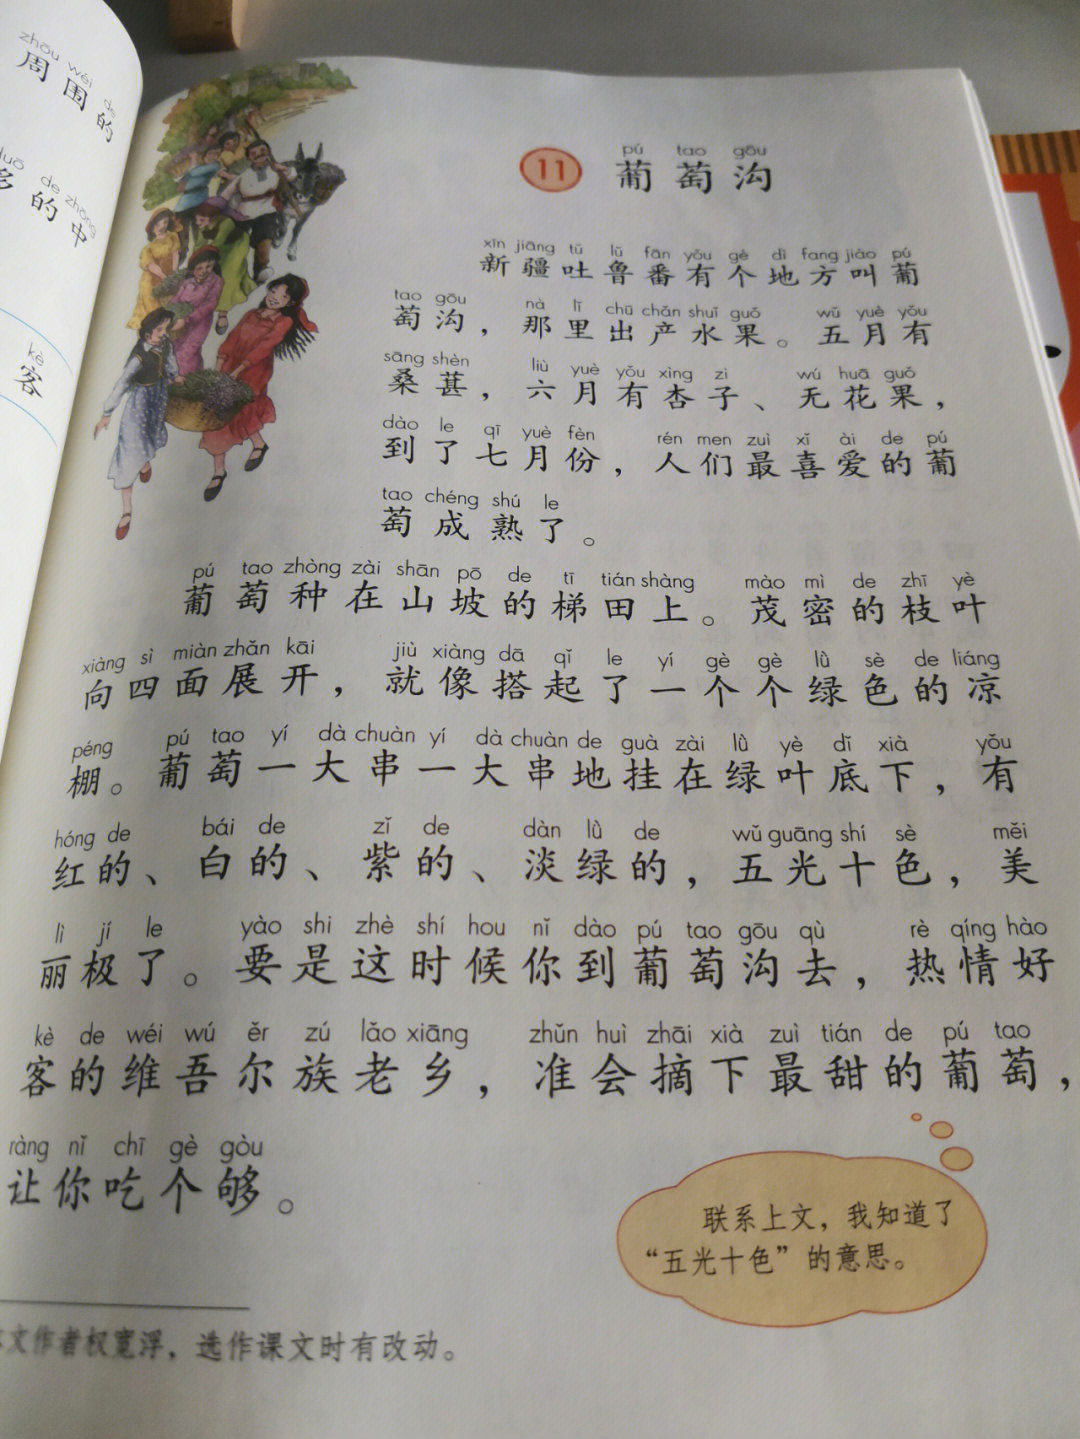 zhōu wéi de
周围的
duō de zhōng
多的中
kè
客
pú tao gōu
11 葡萄沟
xīn jiāng tǔ lǔ fān yǒu gè dì fang jiào pú
新疆吐鲁番有个地方叫葡
tao gōu nà lǐ chū chǎn shuǐ guǒ wǔ yuè yǒu
萄沟，那里出产水果。五月有
sāng shèn liù yuè yǒu xìng zi wú huā guǒ
桑葚，六月有杏子、无花果，
dào le qī yuè fèn rén men zuì xǐ ài de pú
到了七月份，人们最喜爱的葡
tao chéng shú le
萄成熟了。
pú tao zhòng zài shān pō de tī tián shàng mào mì de zhī yè
葡萄种在山坡的梯田上。茂密的枝叶
xiàng sì miàn zhǎn kāi jiù xiàng dā qǐ le yí gè gè lǜ sè de liáng
向四面展开，就像搭起了一个个绿色的凉
péng pú tao yí dà chuàn yí dà chuàn de guà zài lǜ yè dǐ xià yǒu
棚。葡萄一大串一大串地挂在绿叶底下，有
hóng de bái de zǐ de dàn lǜ de wǔ guāng shí sè měi
红的、白的、紫的、淡绿的，五光十色，美
lì jí le yào shi zhè shí hou nǐ dào pú tao gōu qù rè qíng hào
丽极了。要是这时候你到葡萄沟去，热情好
kè de wéi wú ěr zú lǎo xiāng zhǔn huì zhāi xià zuì tián de pú tao
客的维吾尔族老乡，准会摘下最甜的葡萄，
ràng nǐ chī gè gòu
让你吃个够。
联系上文，我知道了
“五光十色”的意思。
文作者权宽浮，选作课文时有改动。